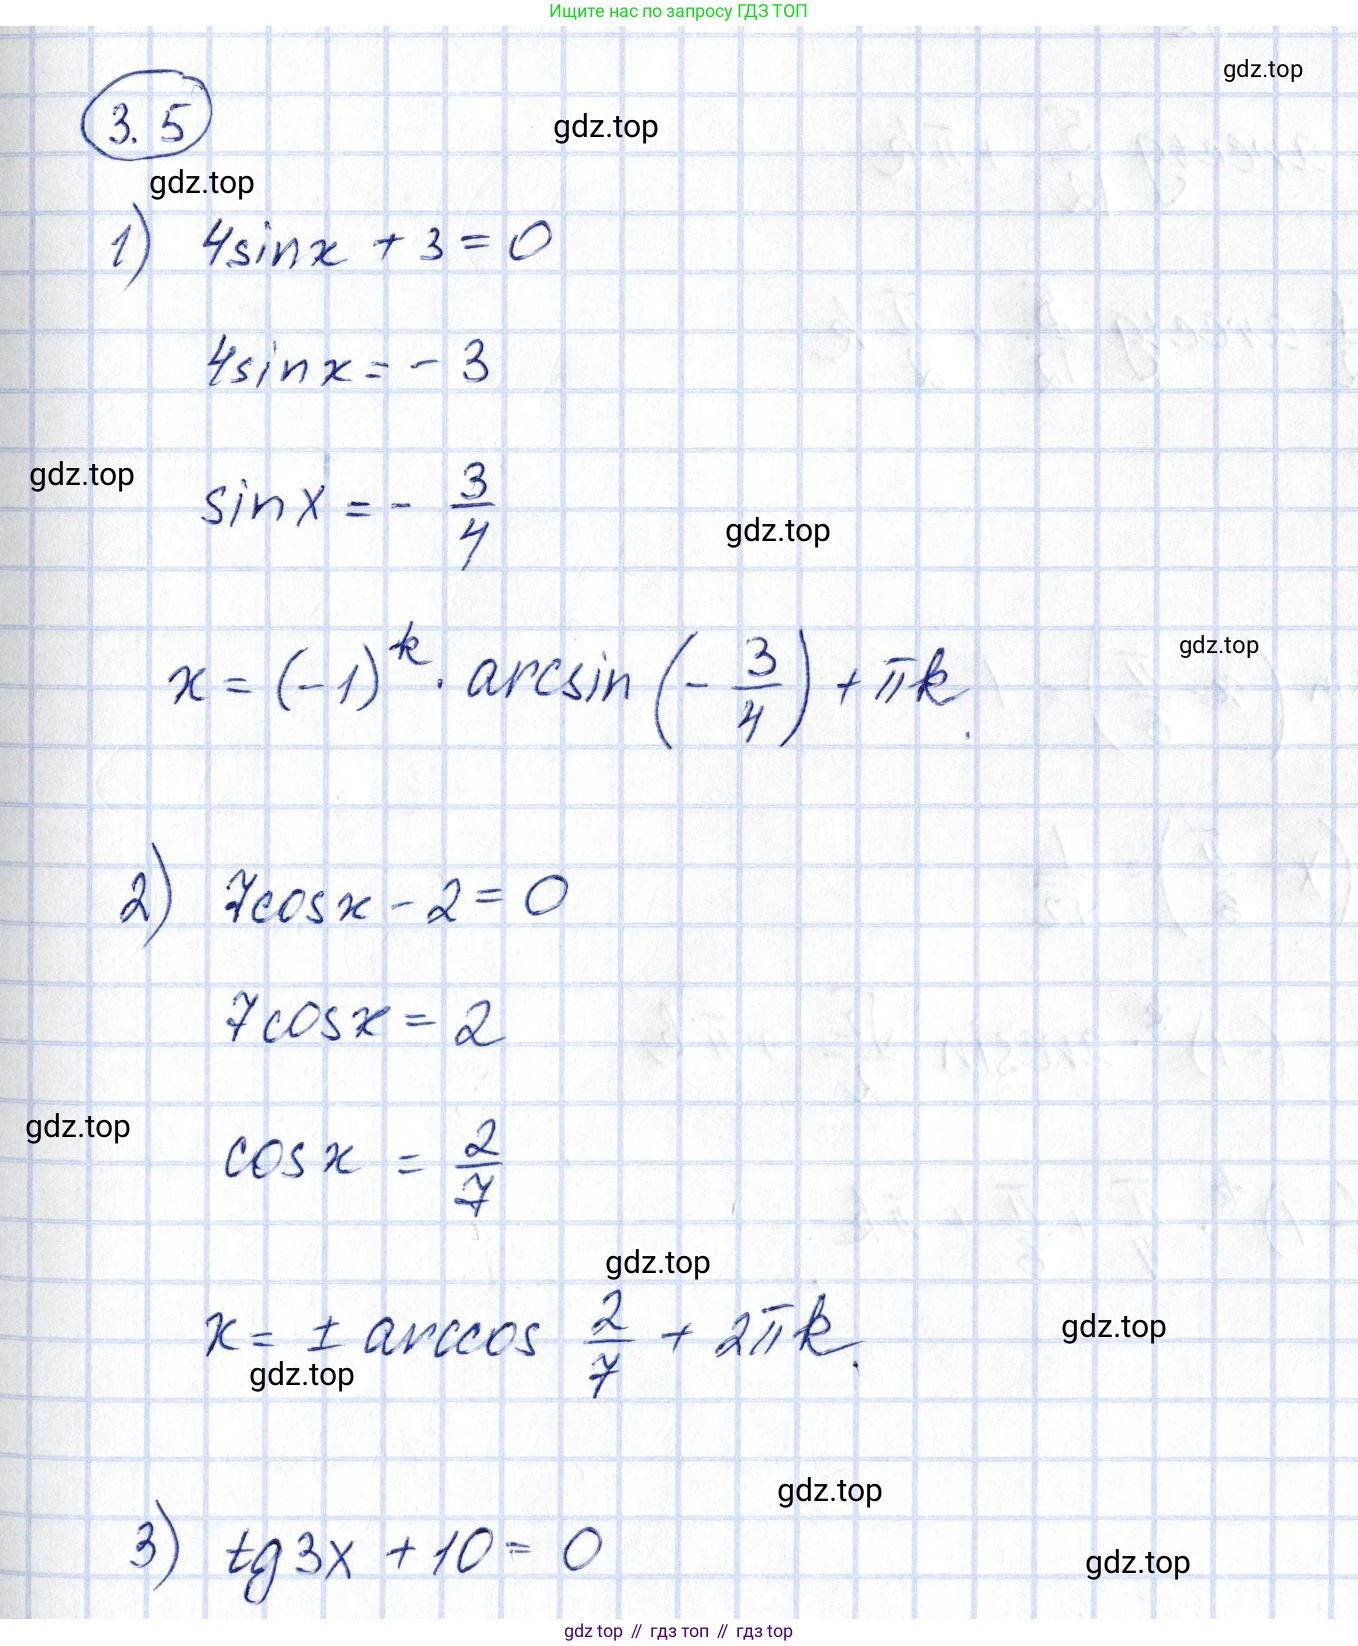 Ищите нас по запросу ГДЗ ТОП
gdz.top
3.5
gdz.top
gdz.top
1) 4sinx + 3 = 0
4sinx = - 3
gdz.top
sinx = - 3/4
gdz.top
x = (-1)^k · arcsin (- 3/4) + πk.
gdz.top
2) 7cosx - 2 = 0
7cosx = 2
gdz.top
cosx = 2/7
gdz.top
x = ± arccos 2/7 + 2πk.
gdz.top
gdz.top
gdz.top
3) tg3x + 10 = 0
gdz.top
gdz.top // гдз топ // гдз top